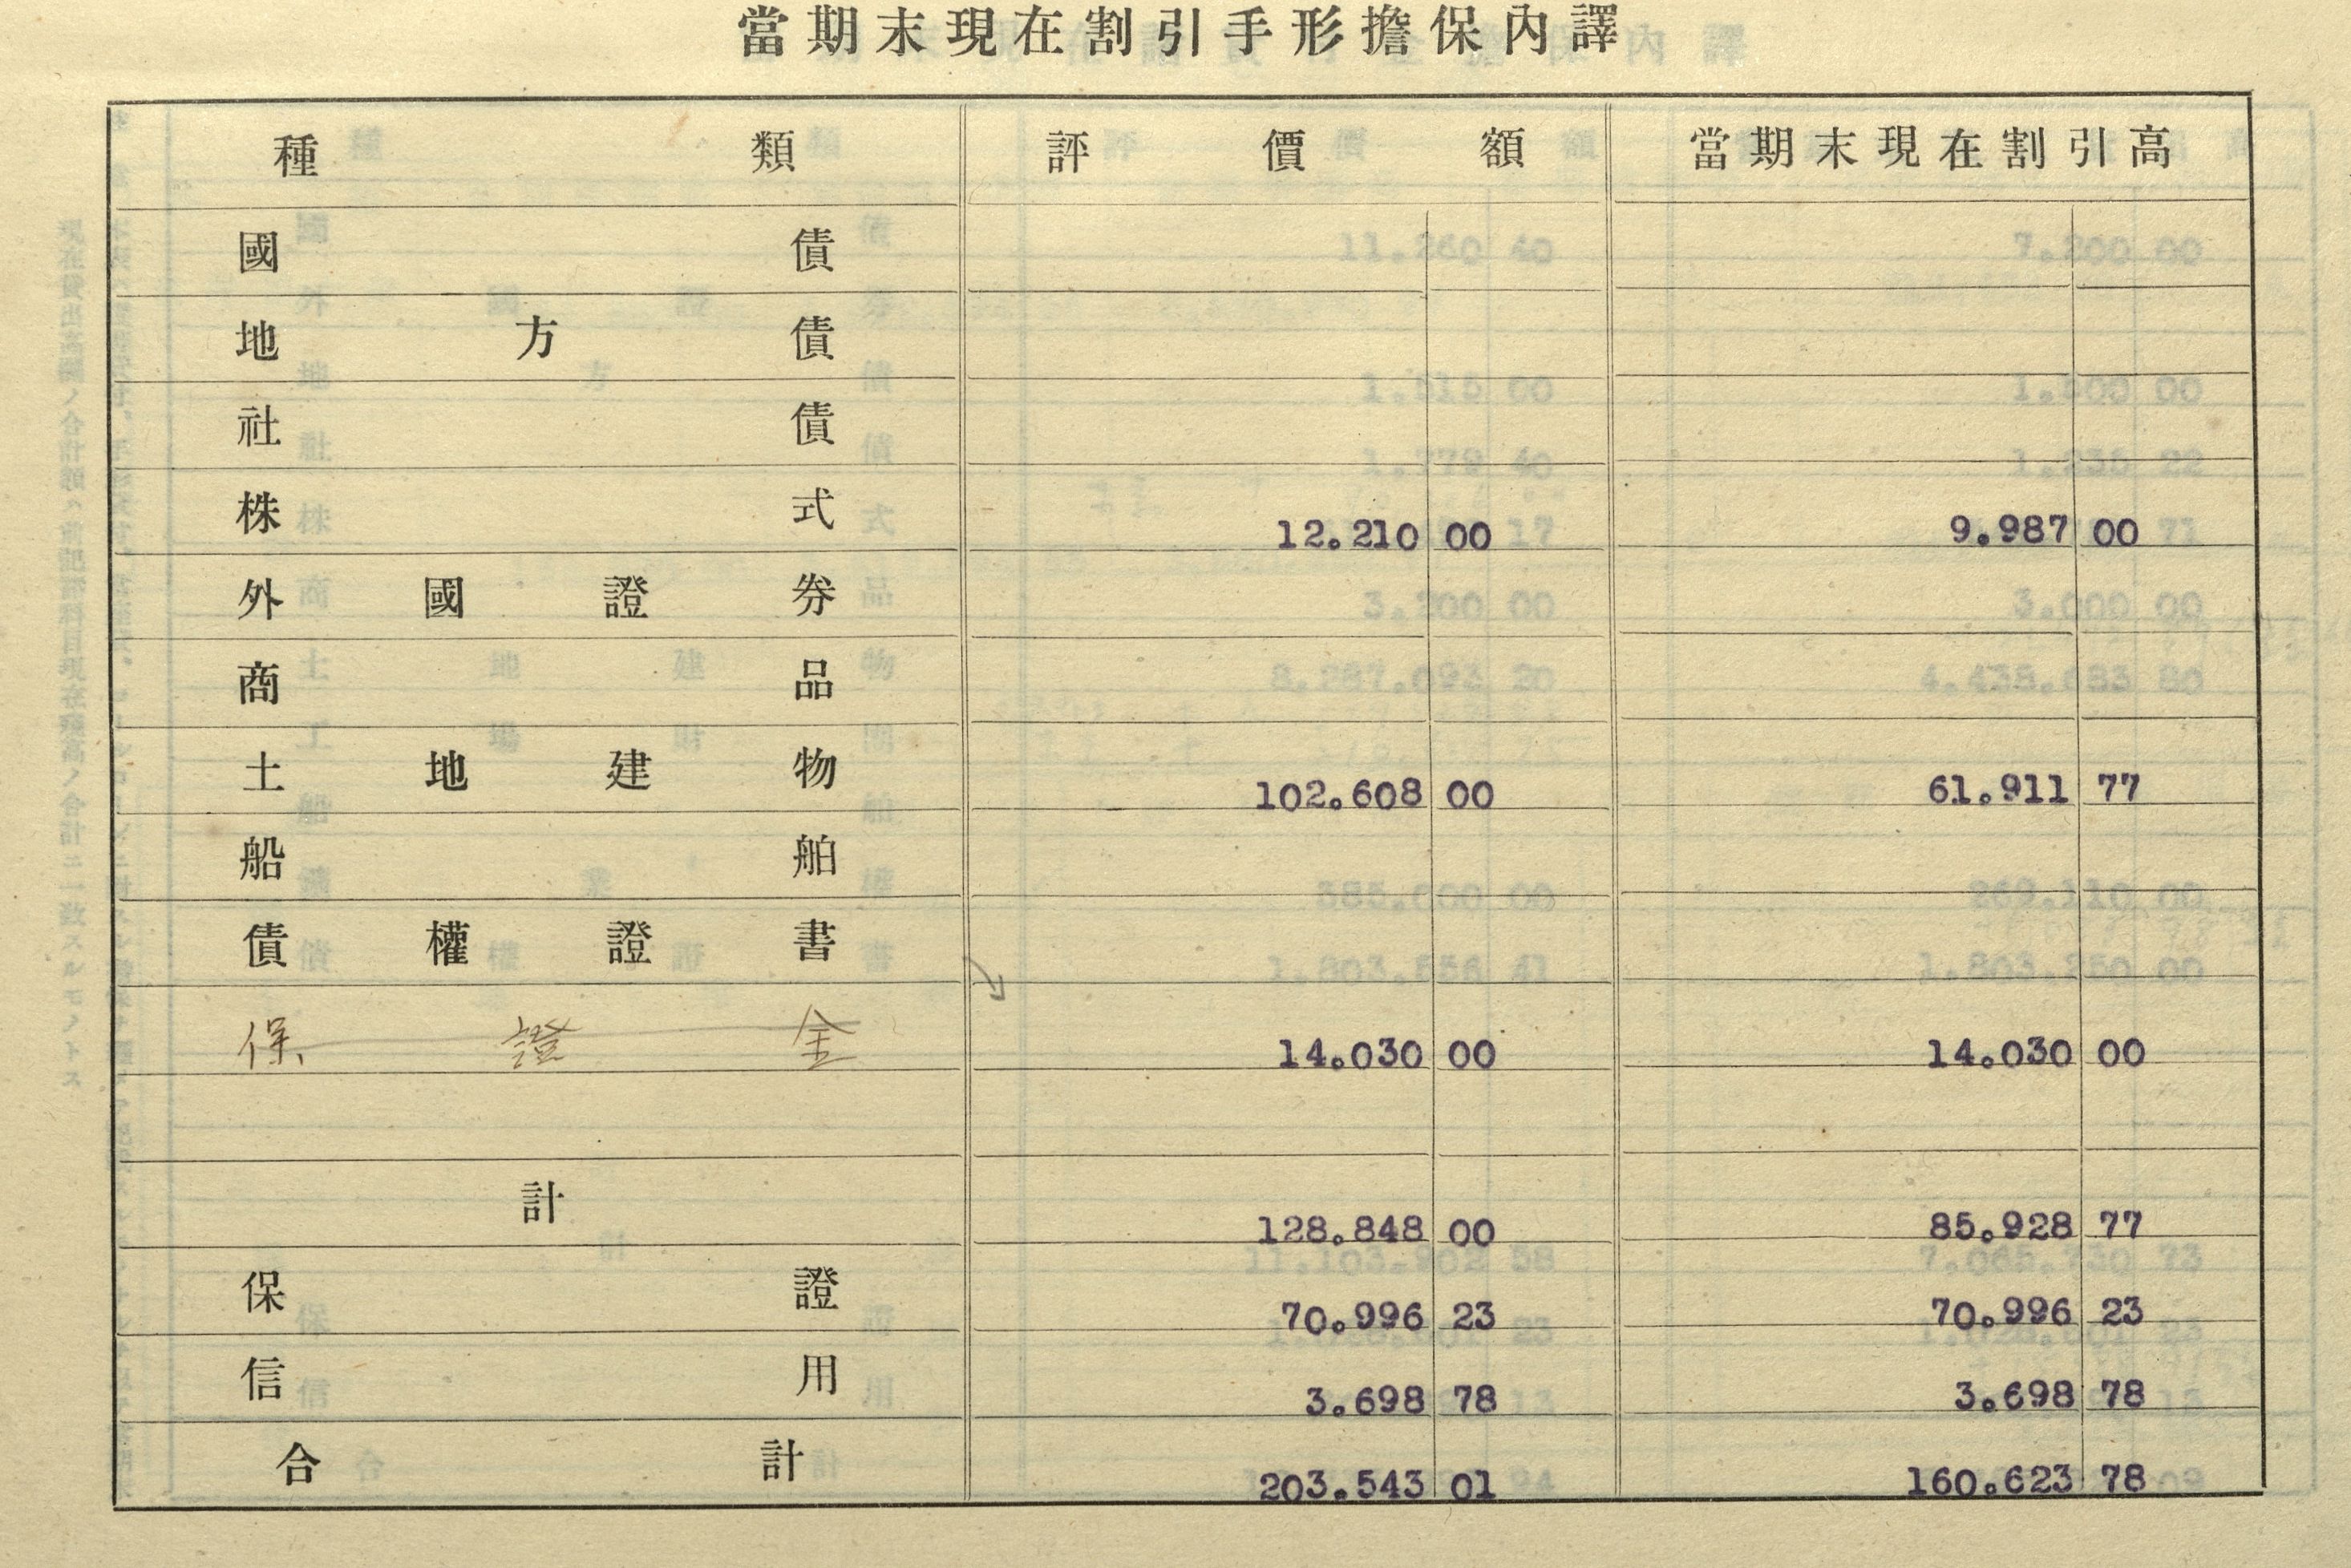 當期末現在割引手形擔保內譯
種類 評價額 當期末現在割引高
國債
地方債
社債
株式 12.210 00 9.987 00
外國證券
商品
土地建物 102.608 00 61.911 77
船舶
債權證書
保證金 14.030 00 14.030 00
計 128.848 00 85.928 77
保證 70.996 23 70.996 23
信用 3.698 78 3.698 78
合計 203.543 01 160.623 78